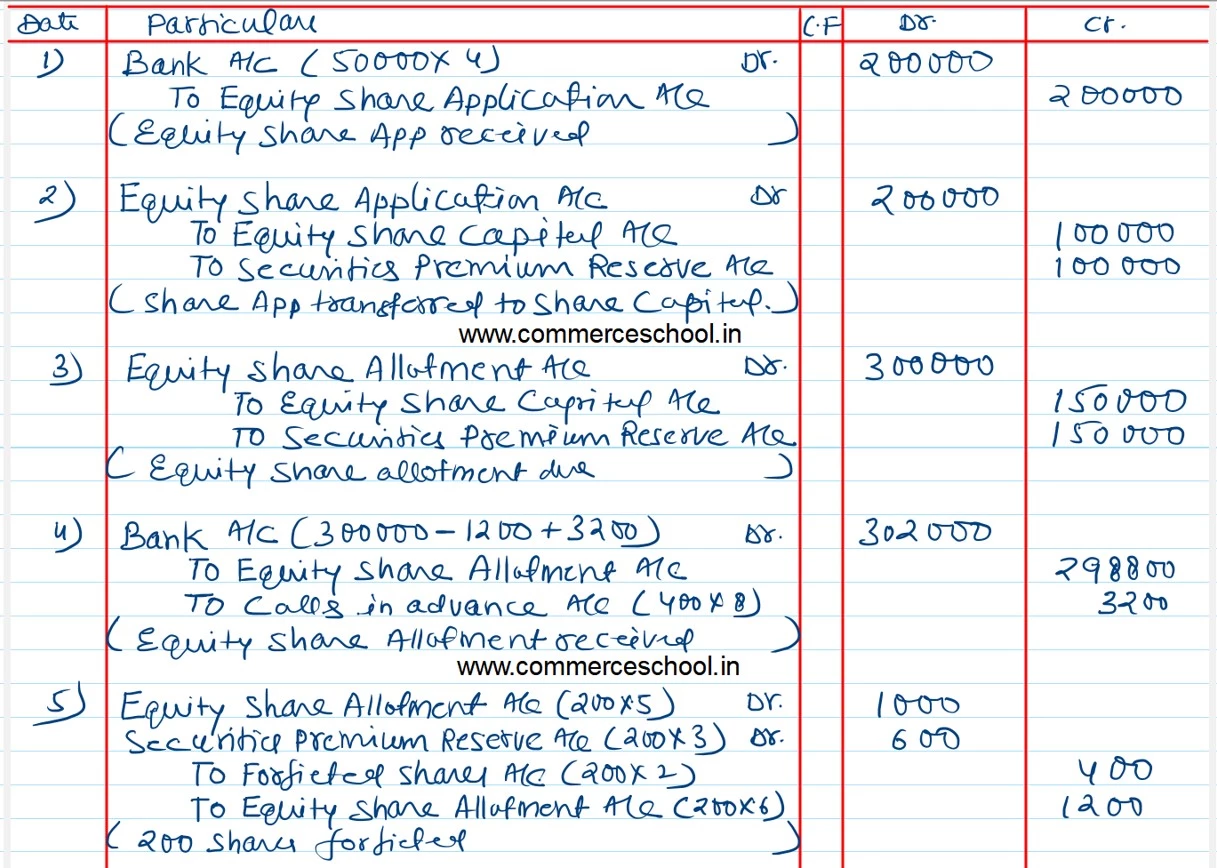 Date Particulars C.F Dr. Cr.
1) Bank A/C (50000X 4) Dr. 200000
To Equity Share Application A/C 200000
(Equity Share App received )
2) Equity Share Application A/C Dr 200000
To Equity Share Capital A/C 100000
To Securities Premium Reserve A/C 100000
(Share App transferred to Share Capital.)
www.commerceschool.in
3) Equity Share Allotment A/C Dr. 300000
To Equity Share Capital A/C 150000
To Securities Premium Reserve A/C 150000
( Equity Share allotment due )
4) Bank A/C (300000-1200+3200) Dr. 302000
To Equity Share Allotment A/C 298800
To Calls in advance A/C (400X8) 3200
(Equity Share Allotment received )
www.commerceschool.in
5) Equity Share Allotment A/C (200X5) Dr. 1000
Securities Premium Reserve A/C (200X3) Dr. 600
To Forfieted Shares A/C (200X2) 400
To Equity Share Allotment A/C (200X6) 1200
( 200 Shares forfieted )